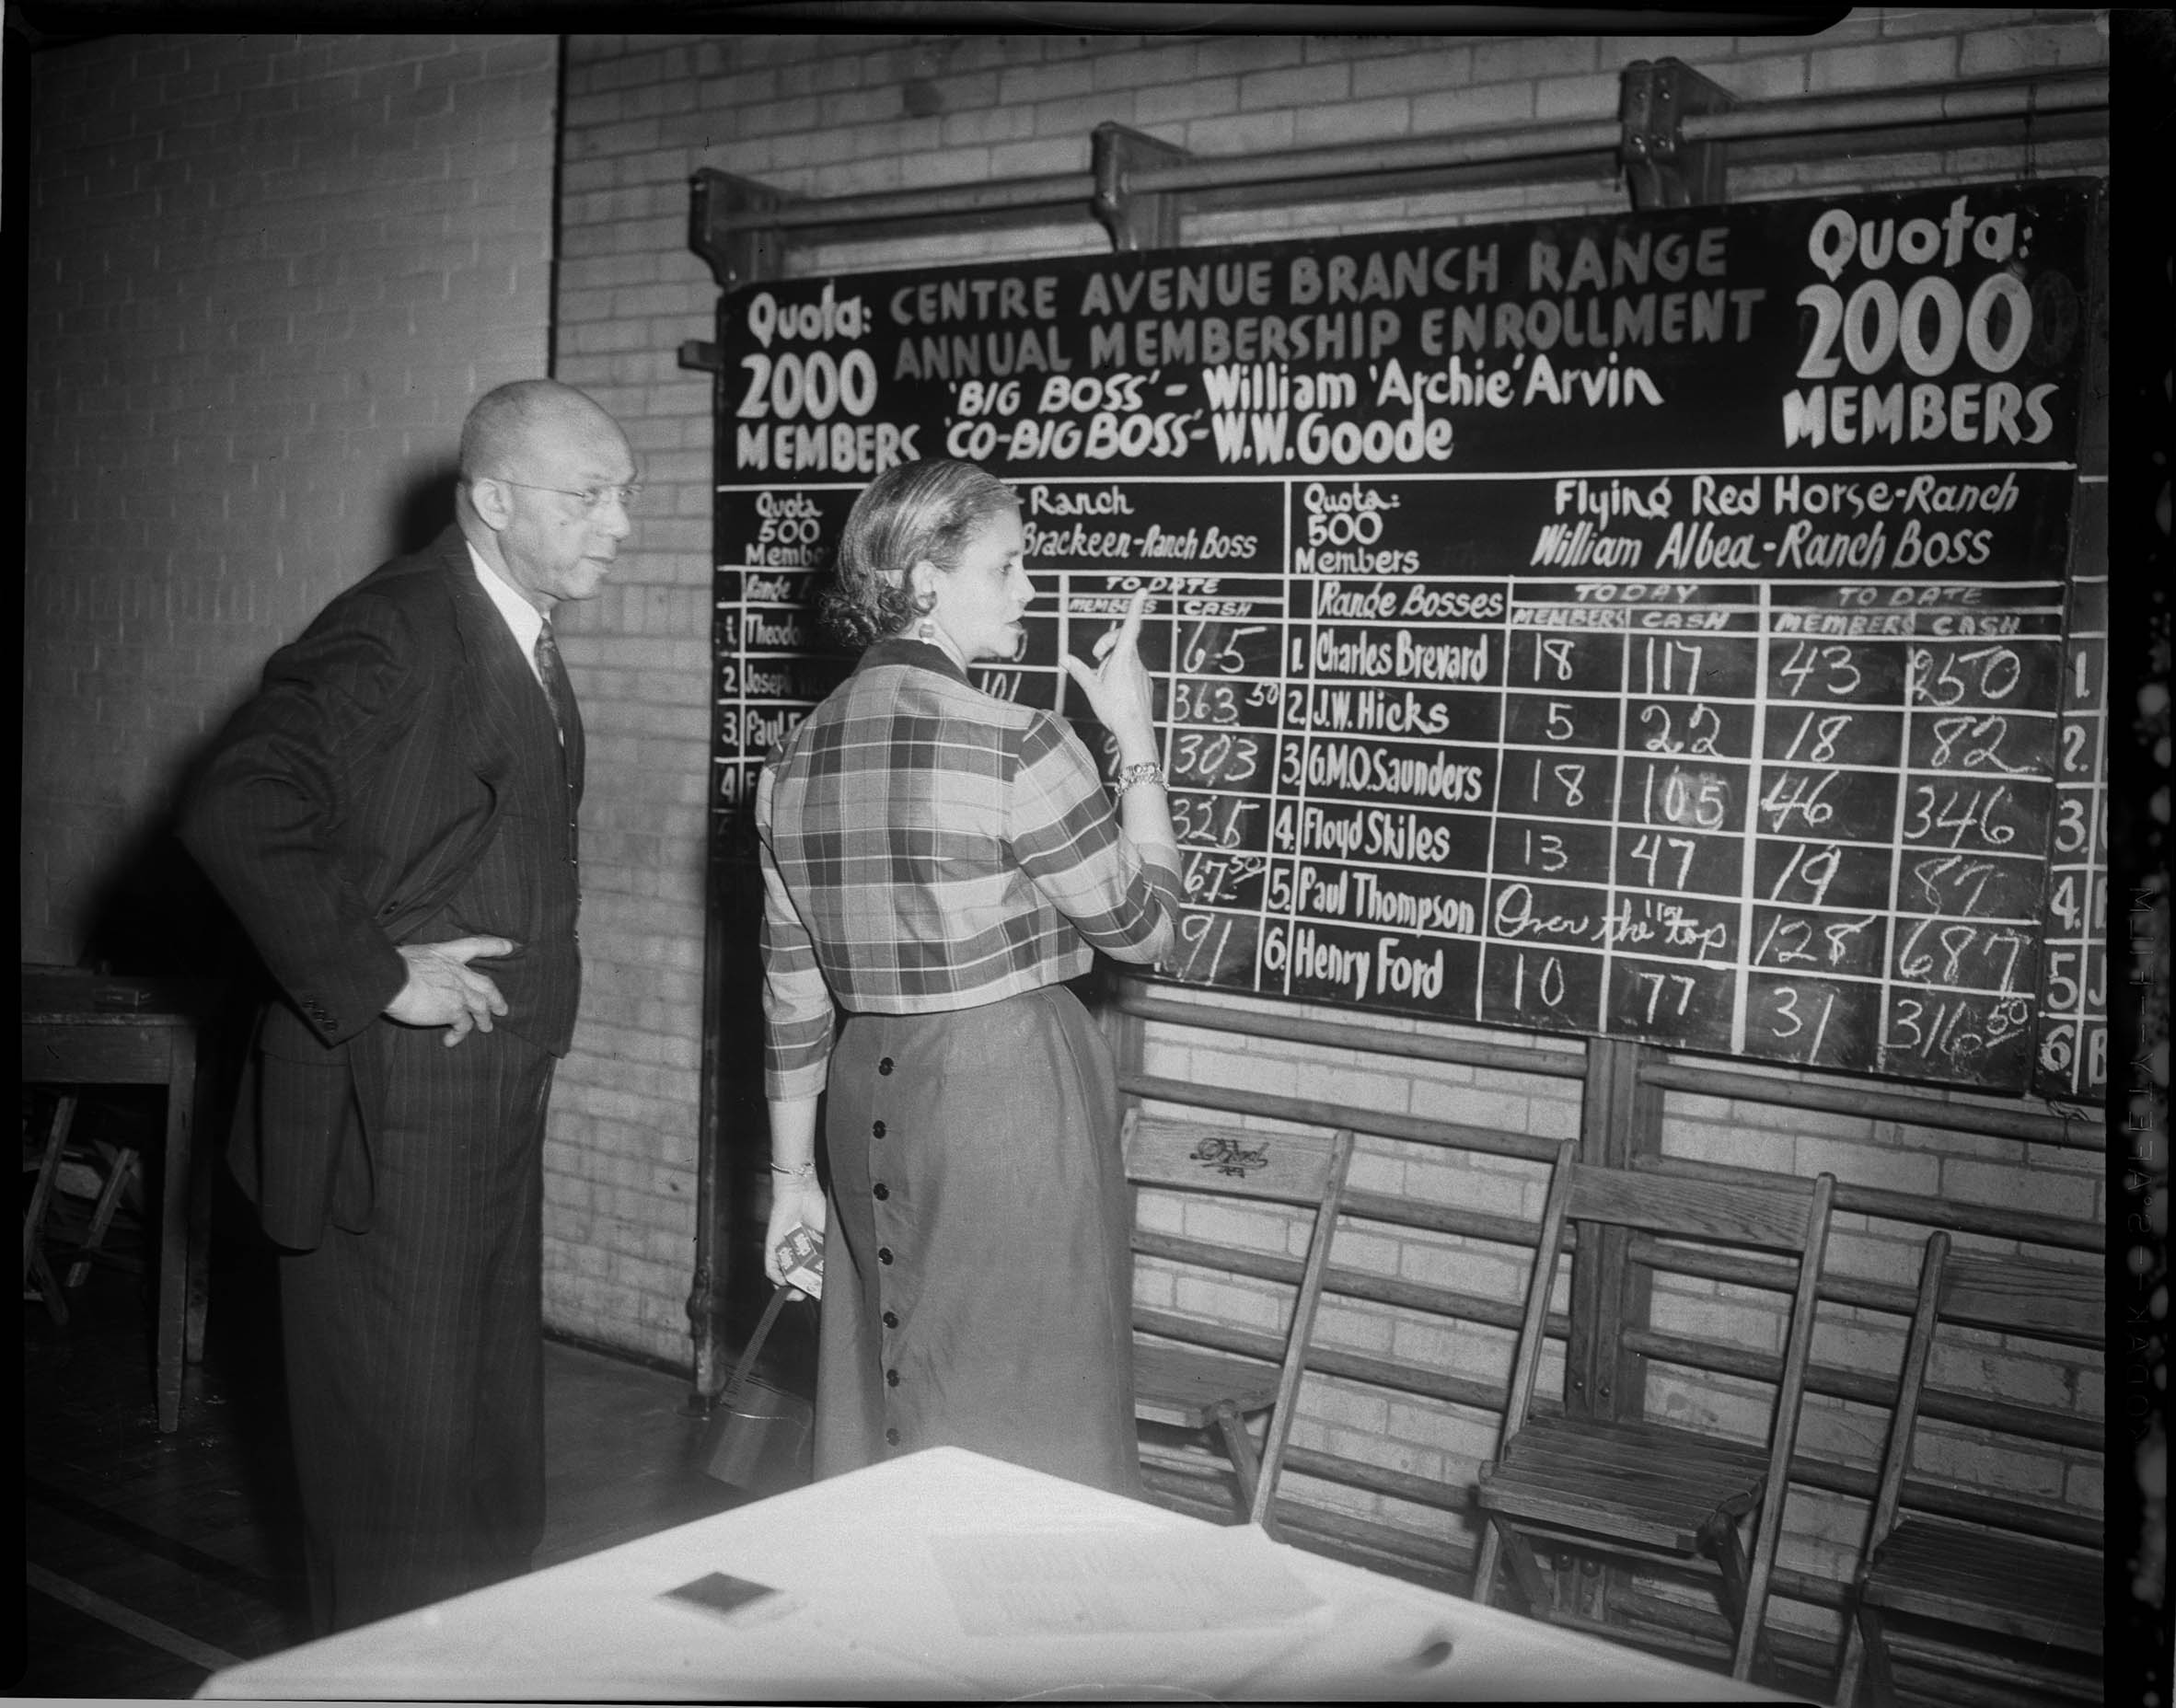 Quota:
2000
MEMBERS
CENTRE AVENUE BRANCH RANGE
ANNUAL MEMBERSHIP ENROLLMENT
'BIG BOSS' - William 'Archie' Arvin
'CO-BIG BOSS' - W.W. Goode
Quota:
2000
MEMBERS
Quota
500
- Ranch
Brackeen - Ranch Boss
Range
TO DATE
MEMBERS CASH
1.
65
2. Joseph
101 363.50
3. Paul
303
4
325
67.50
91
Quota:
500
Members
Flying Red Horse - Ranch
William Albea - Ranch Boss
Range Bosses TODAY TO DATE
MEMBERS CASH MEMBERS CASH
1. Charles Brevard 18 117 43 250
2. J.W. Hicks 5 22 18 82
3. G.M.O. Saunders 18 105 46 346
4. Floyd Skiles 13 47 19 87
5. Paul Thompson Over the top 128 687
6. Henry Ford 10 77 31 316.50
1.
2.
3.
4.
5.
6. B
KODAK